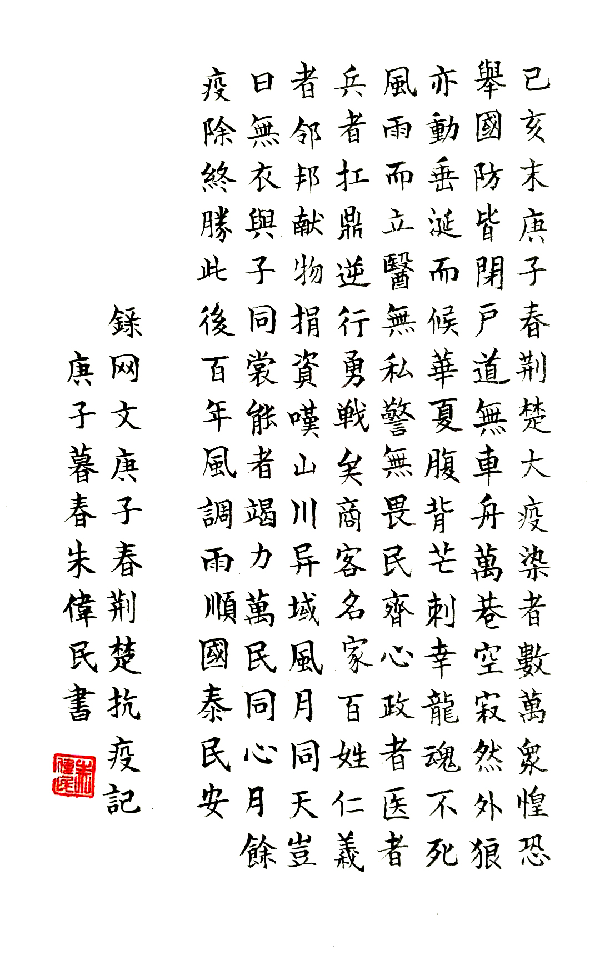 己亥末庚子春荆楚大疫染者數萬衆惶恐
舉國防皆閉戸道無車舟萬巷空寂然外狼
亦動垂涎而候華夏腹背芒刺幸龍魂不死
風雨而立醫無私警無畏民齊心政者医者
兵者扛鼎逆行勇戦矣商客名家百姓仁義
者邻邦献物捐資嘆山川异域風月同天豈
曰無衣與子同裳能者竭力萬民同心月餘
疫除終勝此後百年風調雨順國泰民安
録网文庚子春荆楚抗疫記
庚子暮春朱偉民書
朱偉民